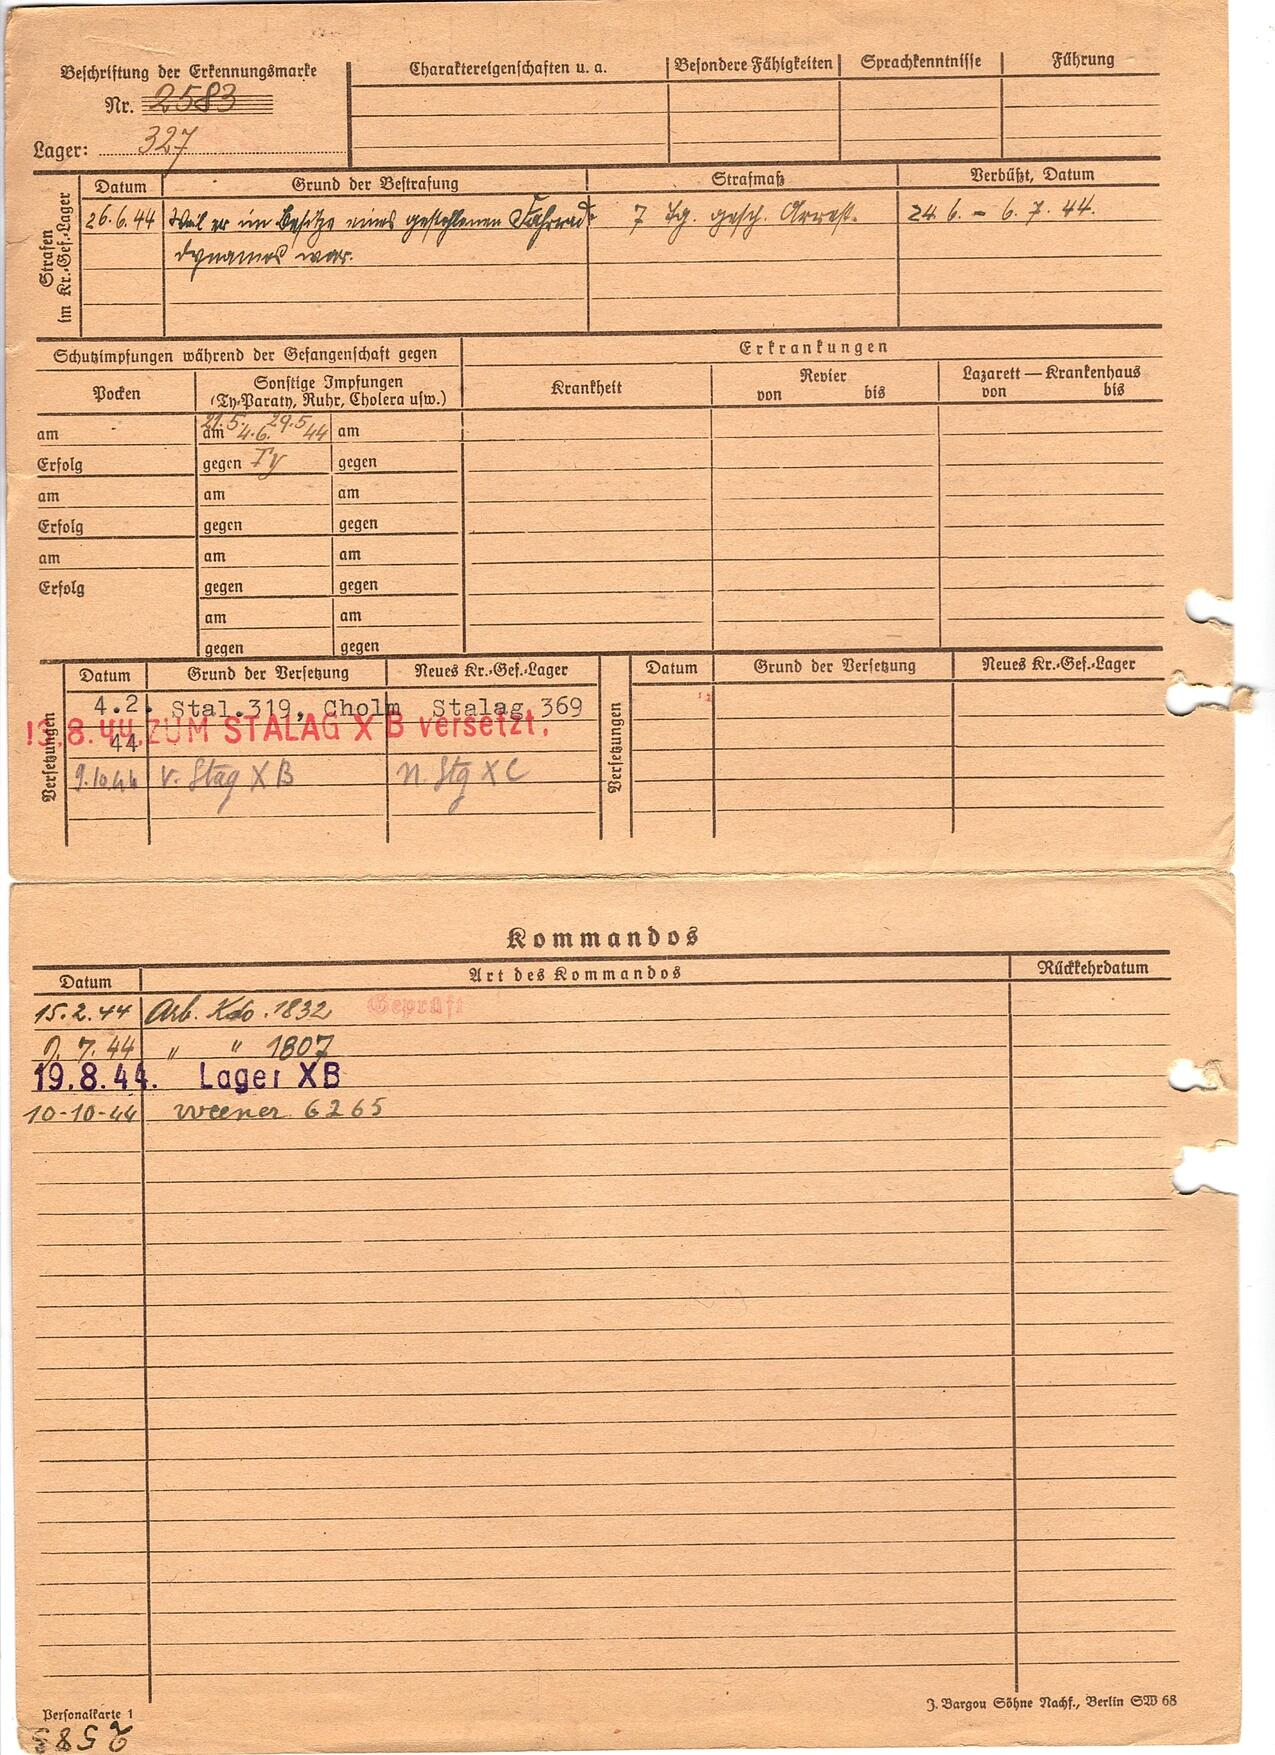 Beschriftung der Erkennungsmarke
Nr. 2583
Lager: 327
Charaktereigenschaften u. a.
Besondere Fähigkeiten
Sprachkenntnisse
Führung
Strafen im Kr.-Gef.-Lager
Datum
Grund der Bestrafung
Strafmaß
Verbüßt, Datum
26.6.44 Weil er im Besitze eines gestohlenen Fahrrad- 7 Tg. gesch. Arrest. 24.6. - 6.7.44.
dynamos war.
Schutzimpfungen während der Gefangenschaft gegen
Erkrankungen
Pocken
Sonstige Impfungen
(Ty-Paraty, Ruhr, Cholera usw.)
Krankheit
Revier
von bis
Lazarett — Krankenhaus
von bis
am am 4.6. 29.5 44 am
Erfolg gegen Ty gegen
am am am
Erfolg gegen gegen
am am am
Erfolg gegen gegen
am am
gegen gegen
Versetzungen
Datum Grund der Versetzung Neues Kr.-Gef.-Lager
4.2. Stal.319, Cholm Stalag 369
44
8.44. ZUM STALAG X B versetzt.
9.10.44 v. Stag X B n. Stg X C
Versetzungen
Datum Grund der Versetzung Neues Kr.-Gef.-Lager
Kommandos
Datum Art des Kommandos Rückkehrdatum
15.2.44 Arb. Kdo. 1832 Geprüft
7.44 " " 1807
19.8.44. Lager XB
10-10-44 Weener 6265
Personalkarte 1
J. Bargou Söhne Nachf., Berlin SW 68
2583